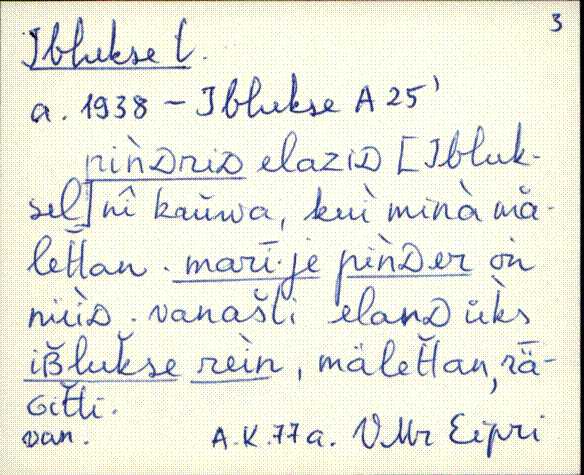 3
Iblukse l.
a. 1938 – Iblukse A 25'
pìǹᴅriᴅ elaziᴅ [Ibluk-
sel] nî kaŭwa, kuì minà mä-
lettan. marī·je pìǹᴅer on
nüìᴅ. vanašti elanᴅ üks
iʙlukse rèin, mälettan, rä-
ɢitti.
van. A.K. 77a. VMr Eipri